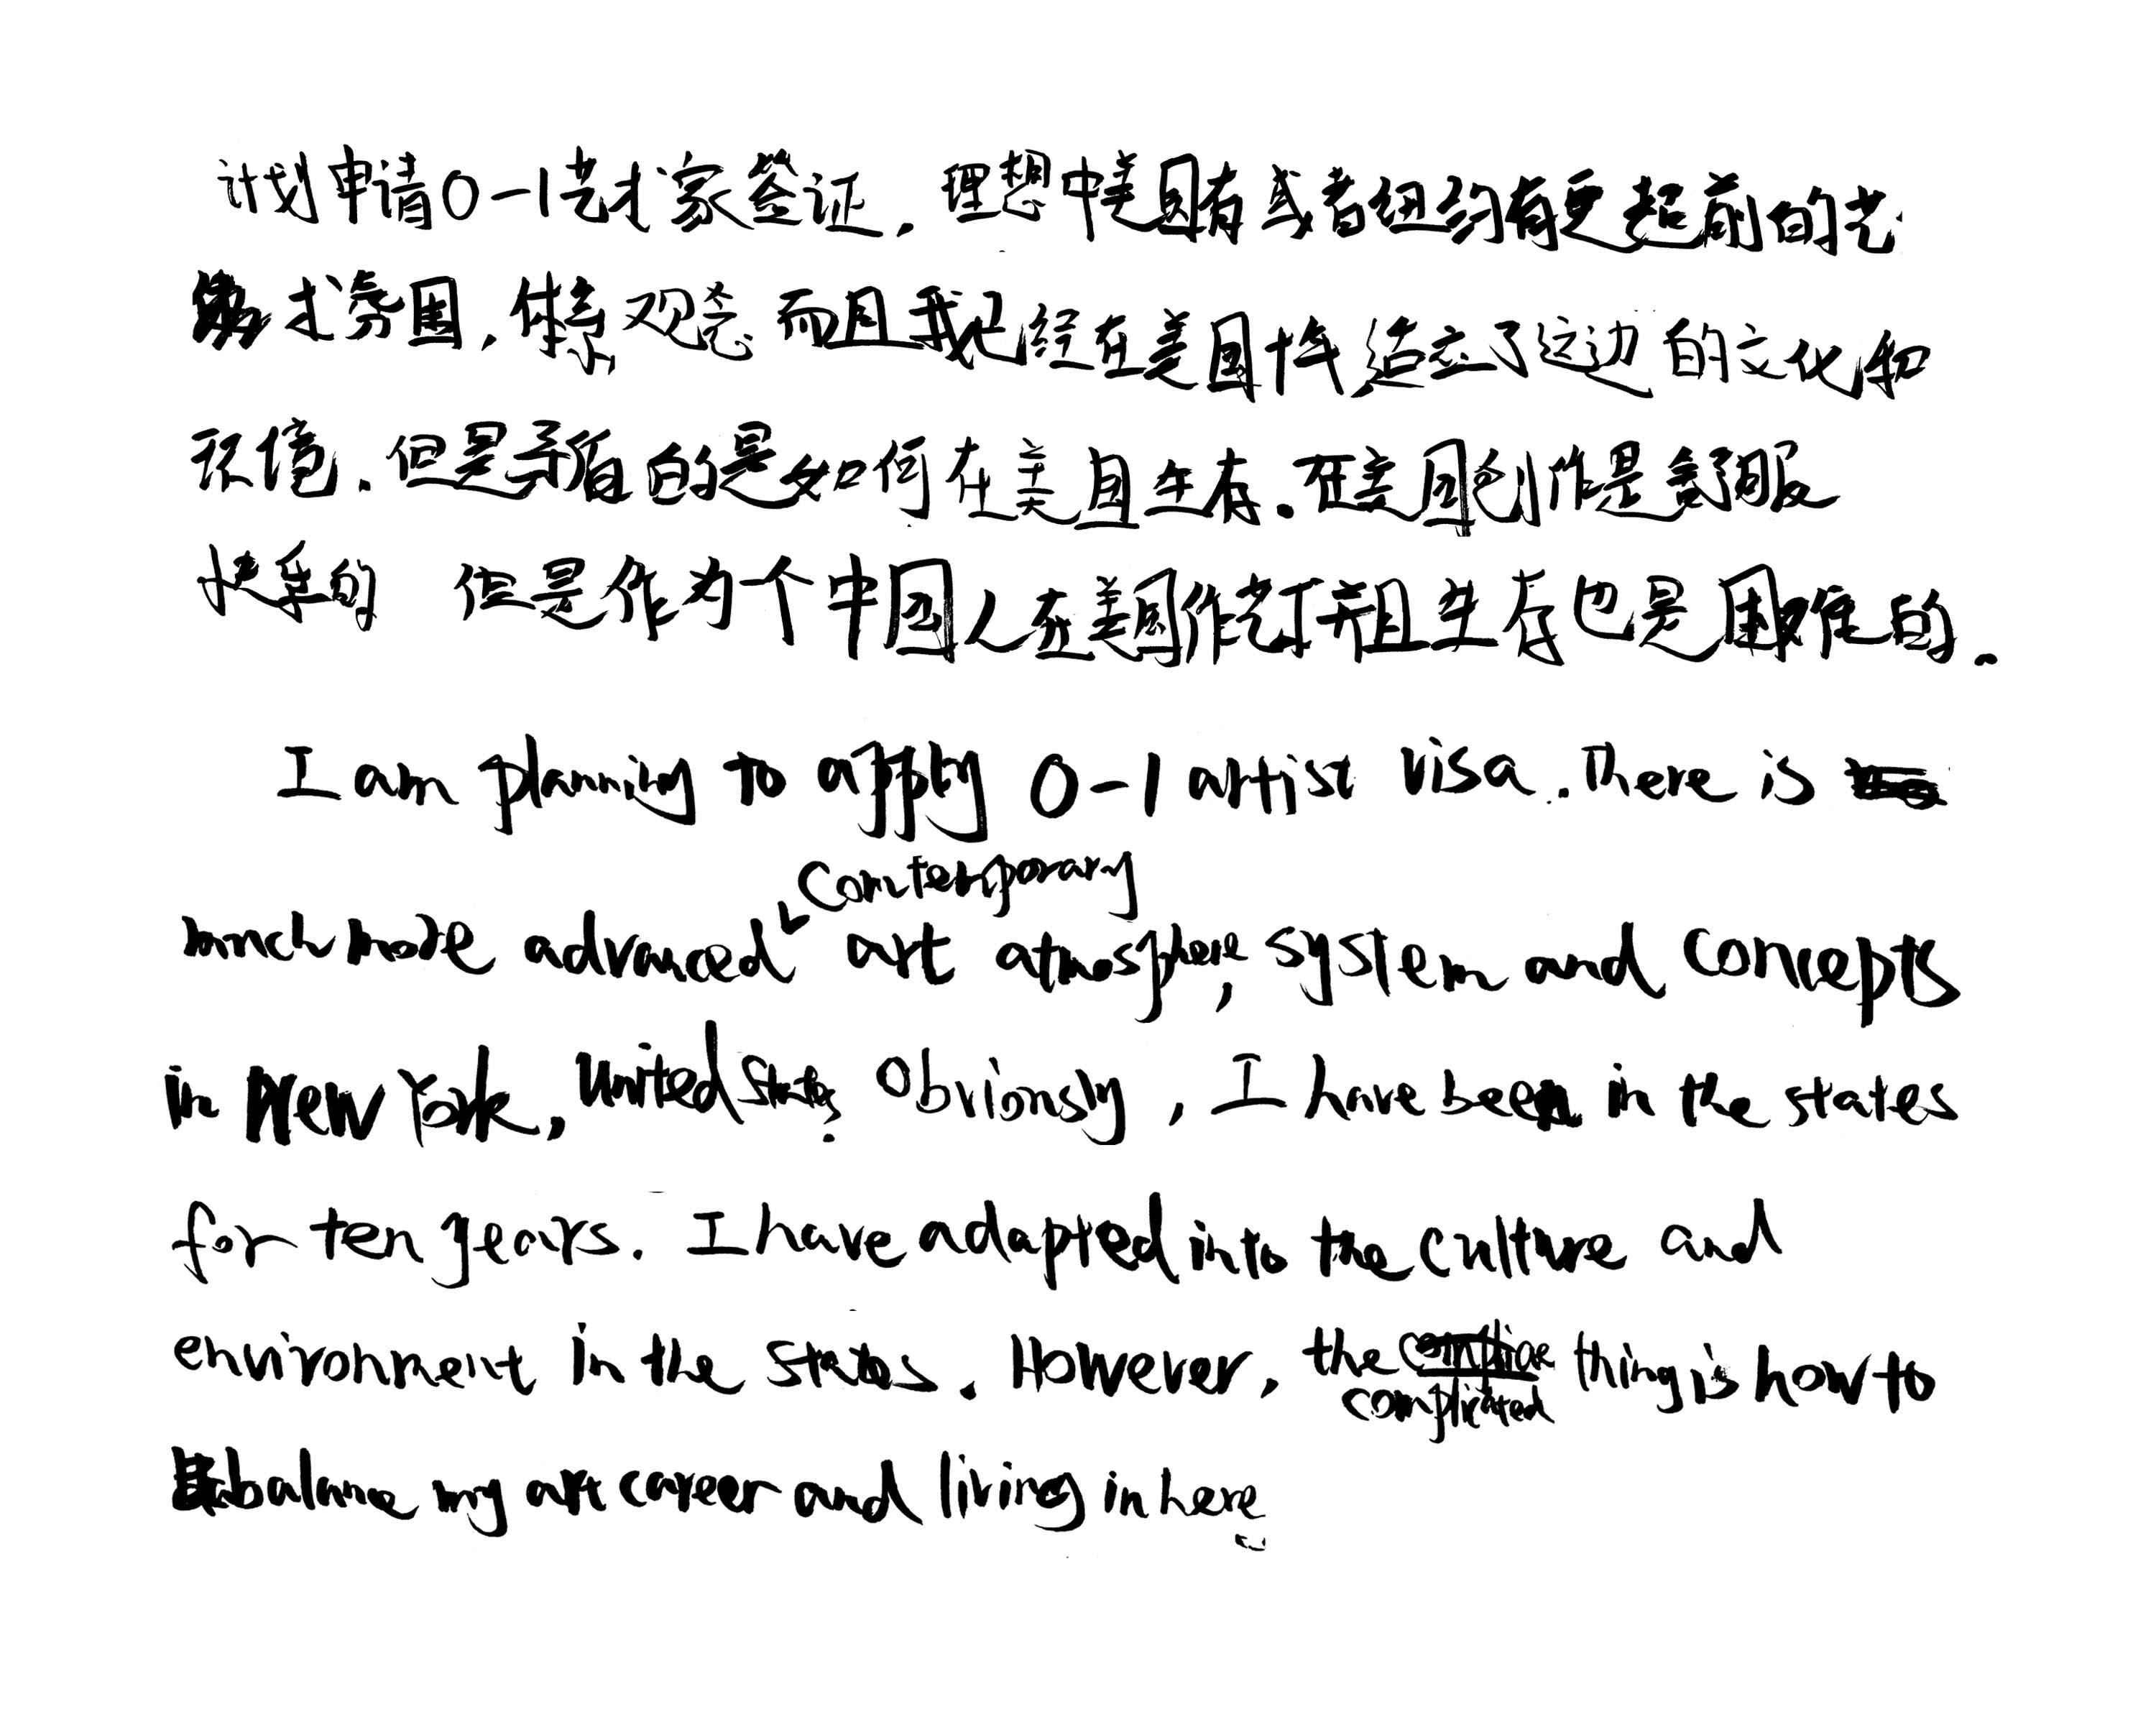 计划申请O-1艺术家签证，理想中美国有或者纽约有更超前的艺
术氛围，体系 观念 而且我已经在美国十年 适应了这边的文化和
环境．但是矛盾的是如何在美国生存．在美国创作是舒服
快乐的 但是作为个中国人在美国作艺术并且生存也是困难的．
I am planning to apply O-1 artist visa. There is
contemporary
much more advanced art atmosphere, system and concepts
in New York, United States. Obviously, I have been in the states
for ten years. I have adapted into the culture and
environment in the states. However, the thing is how to
complicated
balance my art career and living in here